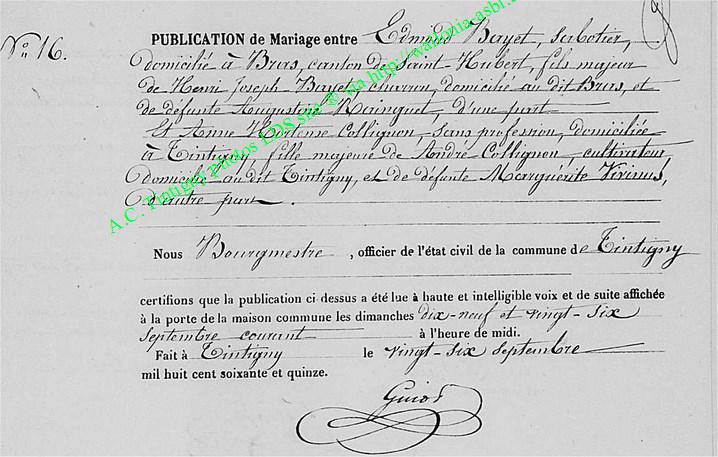 N° 16.
PUBLICATION de Mariage entre Edmond Bayet, sabotier,
domicilié à Bras, canton de Saint Hubert, fils majeur
de Henri Joseph Bayet, charron, domicilié au dit Bras, et
de défunte Augustine Maringuet, d'une part
Et Anne Hortense Collignon, sans profession, domiciliée
à Tintigny, fille majeure de André Collignon, cultivateur,
domicilié au dit Tintigny, et de défunte Marguérite Virinus,
d'autre part.
Nous Bourgmestre, officier de l'état civil de la commune de Tintigny
certifions que la publication ci-dessus a été lue à haute et intelligible voix et de suite affichée
à la porte de la maison commune les dimanches dix-neuf et vingt-six
septembre courant à l'heure de midi.
Fait à Tintigny le vingt-six septembre
mil huit cent soixante et quinze.
A.C. Tintigny photos EDS site @ via http://walfonia-asbl.